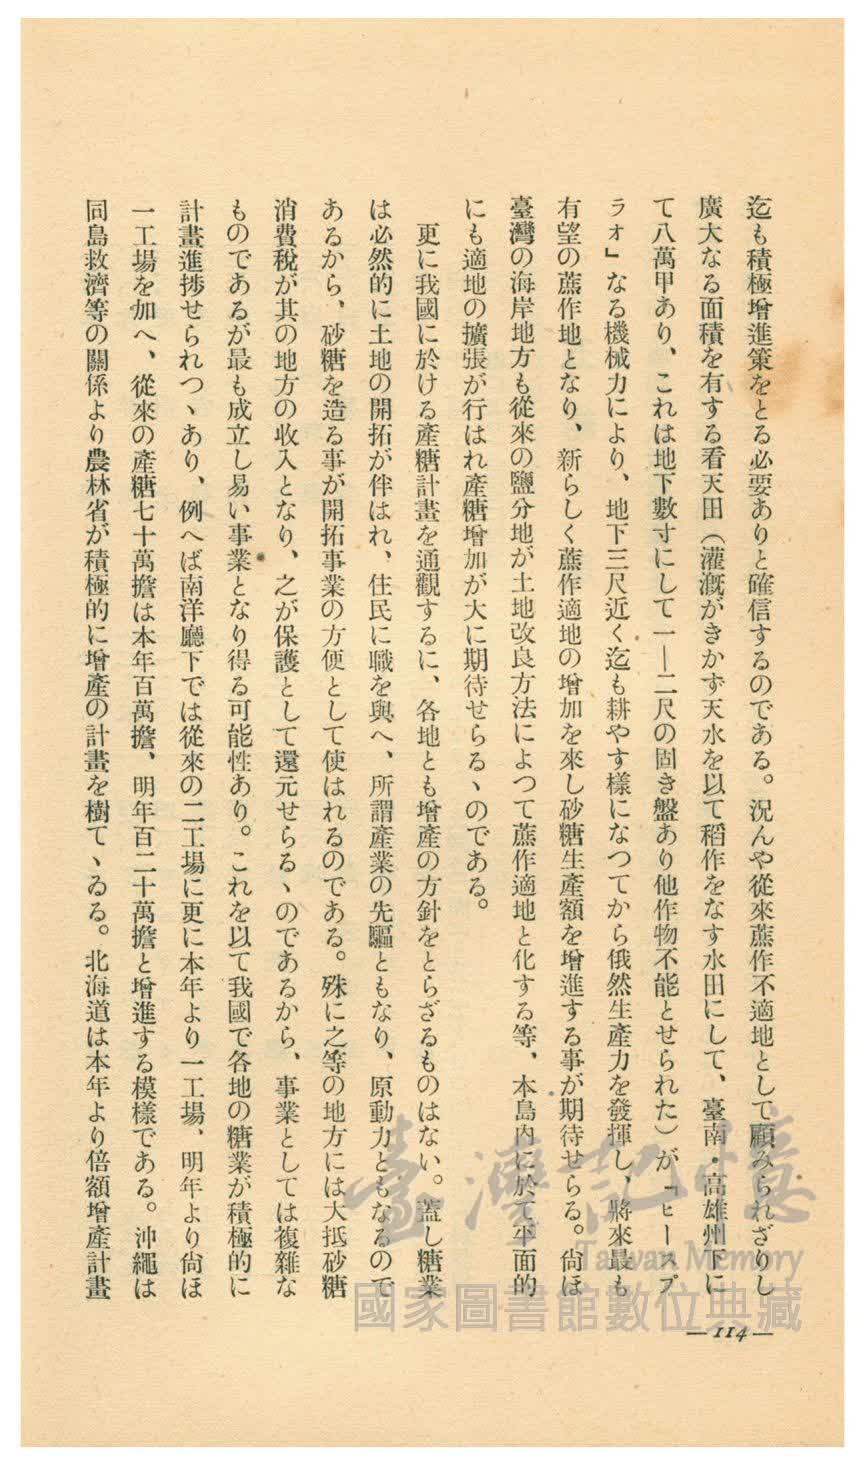 迄も積極增進策をとる必要ありと確信するのである。況んや從來蔗作不適地として顧みられざりし
廣大なる面積を有する看天田（灌漑がきかず天水を以て稻作をなす水田にして、臺南・高雄州下に
て八萬甲あり、これは地下數寸にして一—二尺の固き盤あり他作物不能とせられた）が「ヒースプ
ラオ」なる機械力により、地下三尺近く迄も耕やす樣になつてから俄然生產力を發揮し、將來最も
有望の蔗作地となり、新らしく蔗作適地の增加を來し砂糖生產額を增進する事が期待せらる。尙ほ
臺灣の海岸地方も從來の鹽分地が土地改良方法によつて蔗作適地と化する等、本島内に於て平面的
にも適地の擴張が行はれ產糖增加が大に期待せらるゝのである。
更に我國に於ける產糖計畫を通觀するに、各地とも增產の方針をとらざるものはない。蓋し糖業
は必然的に土地の開拓が伴はれ、住民に職を與へ、所謂產業の先驅ともなり、原動力ともなるので
あるから、砂糖を造る事が開拓事業の方便として使はれるのである。殊に之等の地方には大抵砂糖
消費稅が其の地方の收入となり、之が保護として還元せらるゝのであるから、事業としては複雜な
ものであるが最も成立し易い事業となり得る可能性あり。これを以て我國で各地の糖業が積極的に
計畫進捗せられつゝあり、例へば南洋廳下では從來の二工場に更に本年より一工場、明年より尙ほ
一工場を加へ、從來の產糖七十萬擔は本年百萬擔、明年百二十萬擔と增進する模樣である。沖繩は
同島救濟等の關係より農林省が積極的に增產の計畫を樹てゝゐる。北海道は本年より倍額增產計畫
—114—
臺灣記憶
Taiwan Memory
國家圖書館數位典藏